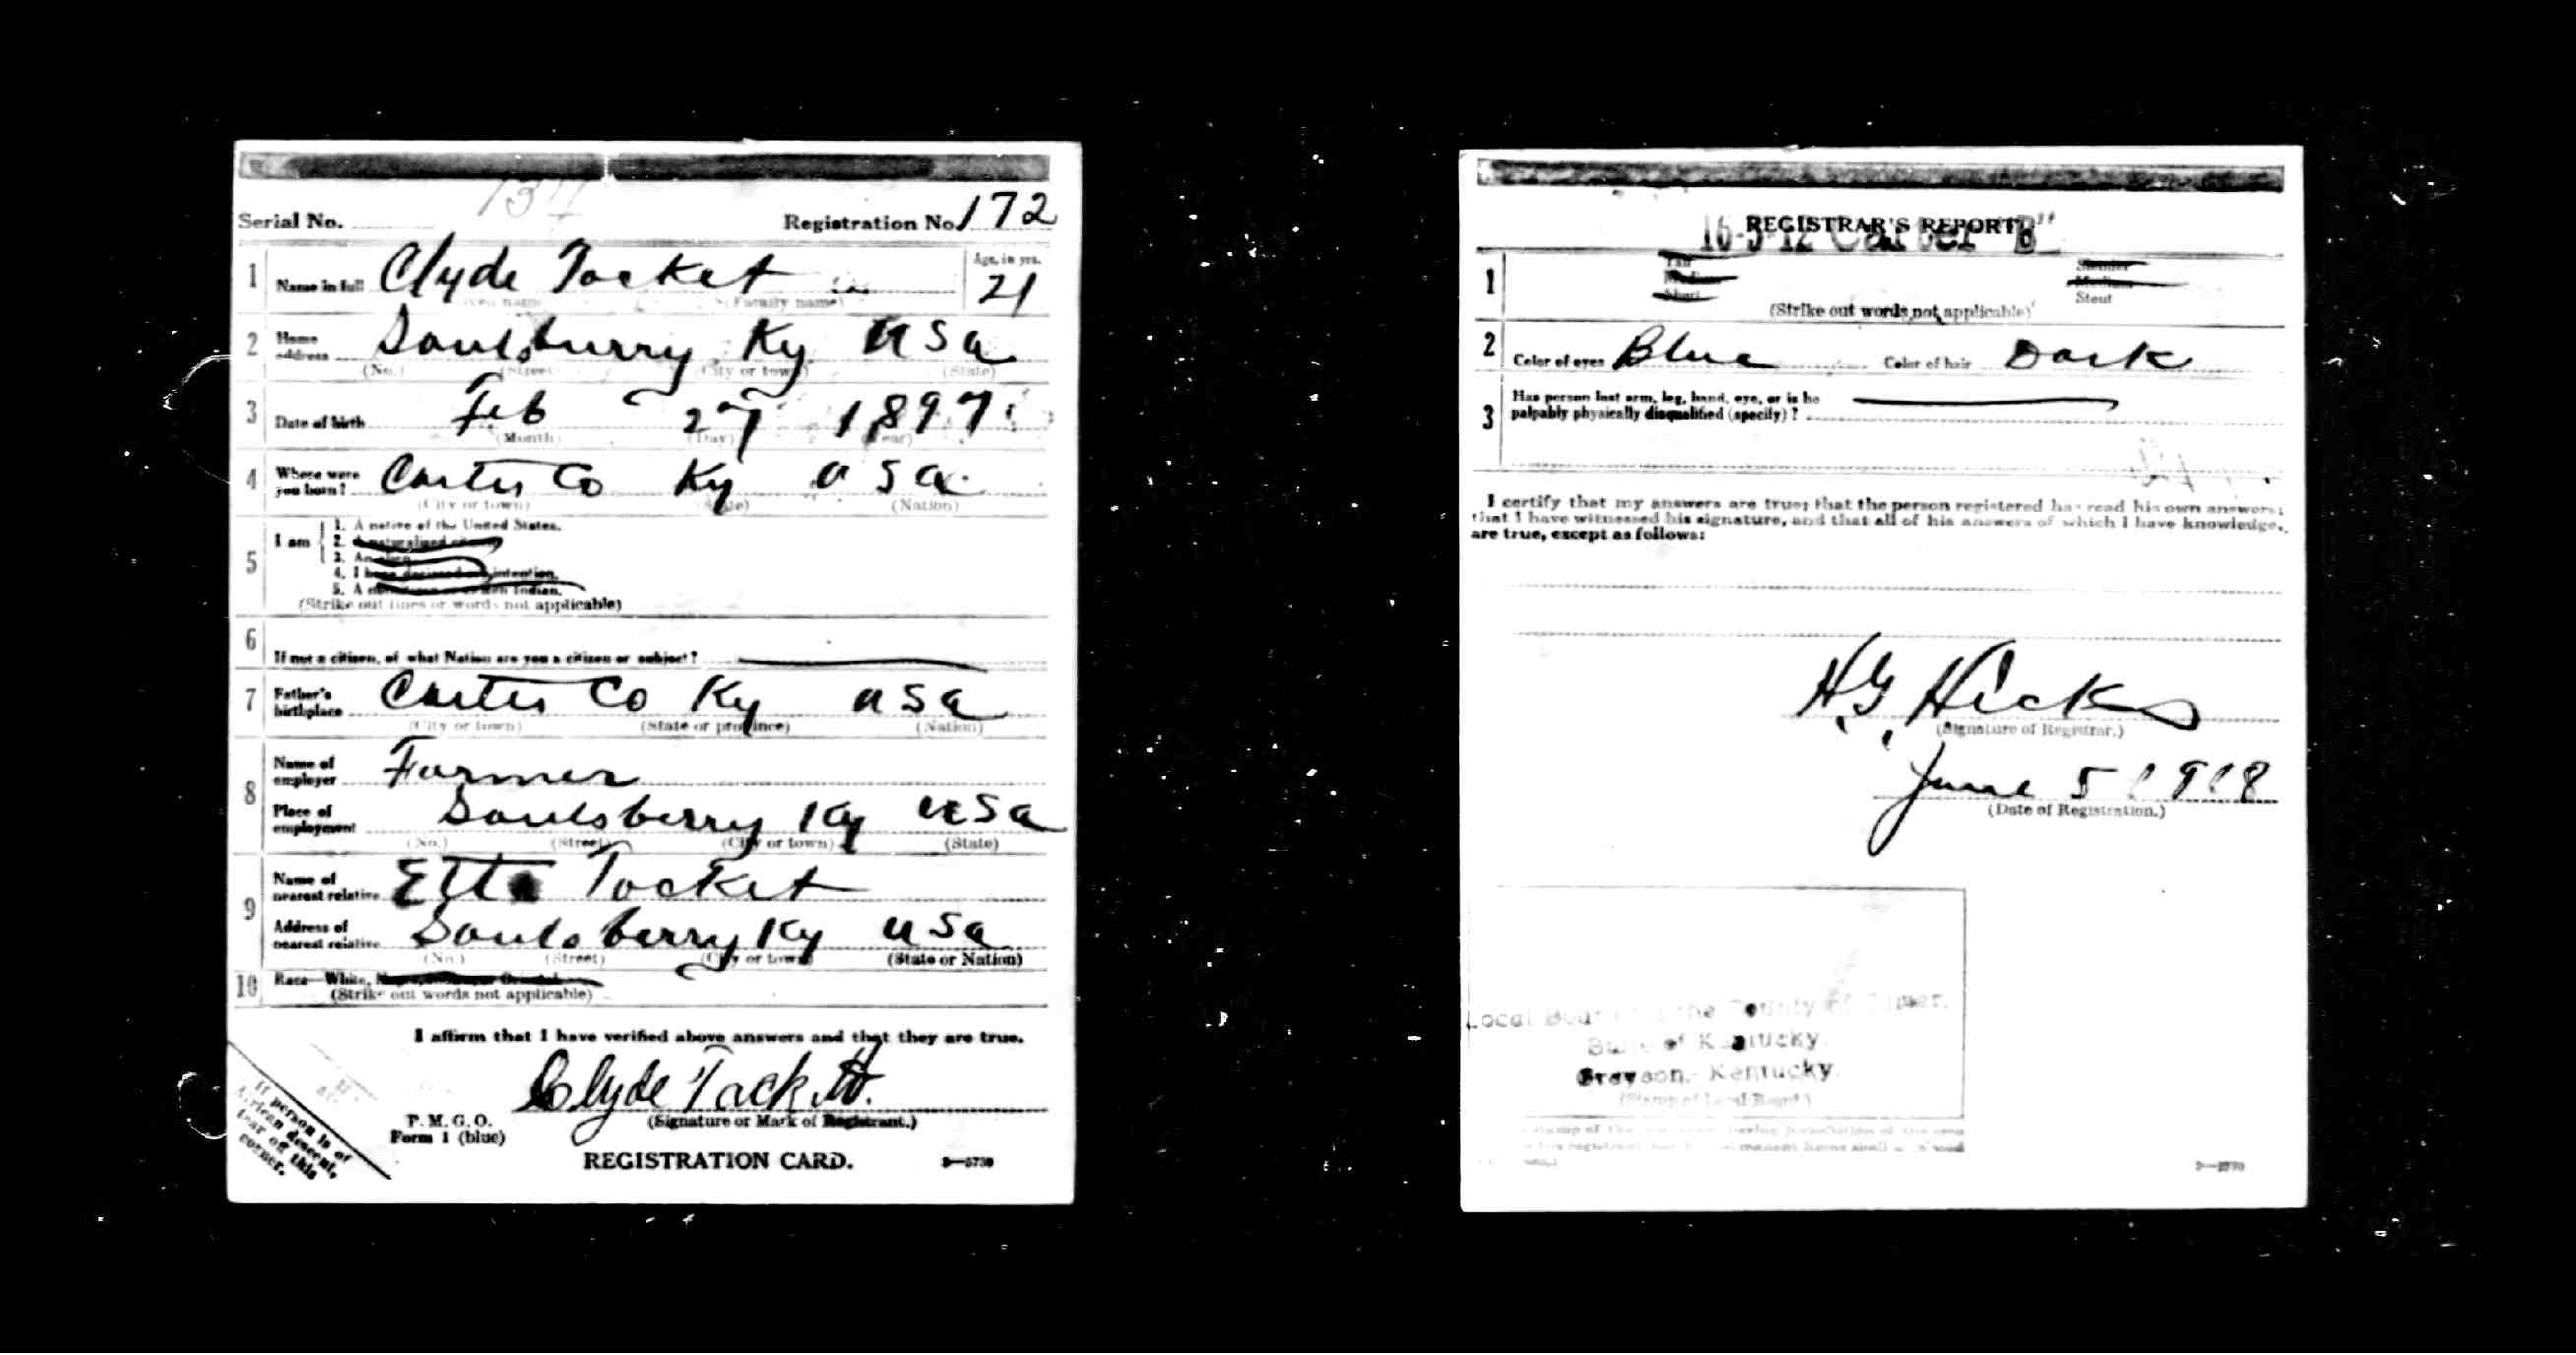 Serial No. 134 Registration No. 172
1 Name in full Clyde Tacket Age, in yrs. 21
(Given name) (Family name)
2 Home address Soulsburry Ky USa
(No.) (Street) (City or town) (State)
3 Date of birth Feb 27 1897
(Month) (Day) (Year)
4 Where were you born? Carter Co Ky USa
(City or town) (State) (Nation)
5 I am
1. A native of the United States.
2. A naturalized citizen.
3. An alien.
4. I have declared my intention.
5. A noncitizen or citizen Indian.
(Strike out lines or words not applicable)
6 If not a citizen, of what Nation are you a citizen or subject?
7 Father's birthplace Carter Co Ky USa
(City or town) (State or province) (Nation)
8 Name of employer Farmer
Place of employment Soulsberry Ky USa
(No.) (Street) (City or town) (State)
9 Name of nearest relative Etta Tacket
Address of nearest relative Soulsberry Ky USa
(No.) (Street) (City or town) (State or Nation)
10 Race—White,
(Strike out words not applicable)
I affirm that I have verified above answers and that they are true.
Clyde Tackett.
(Signature or Mark of Registrant.)
P. M. G. O.
Form 1 (blue)
REGISTRATION CARD.
If person is of
African descent,
tear off this
corner.
REGISTRAR'S REPORT
16-3-12 Carter "B"
1 Tall Medium Short Slender Medium Stout
(Strike out words not applicable)
2 Color of eyes Blue Color of hair Dark
3 Has person lost arm, leg, hand, eye, or is he
palpably physically disqualified (specify)?
I certify that my answers are true; that the person registered has read his own answers;
that I have witnessed his signature, and that all of his answers of which I have knowledge,
are true, except as follows:
H.G. Hicks
(Signature of Registrar.)
June 5 1918
(Date of Registration.)
Local Board the County of
State of Kentucky.
Grayson, Kentucky.
(Stamp of Local Board.)